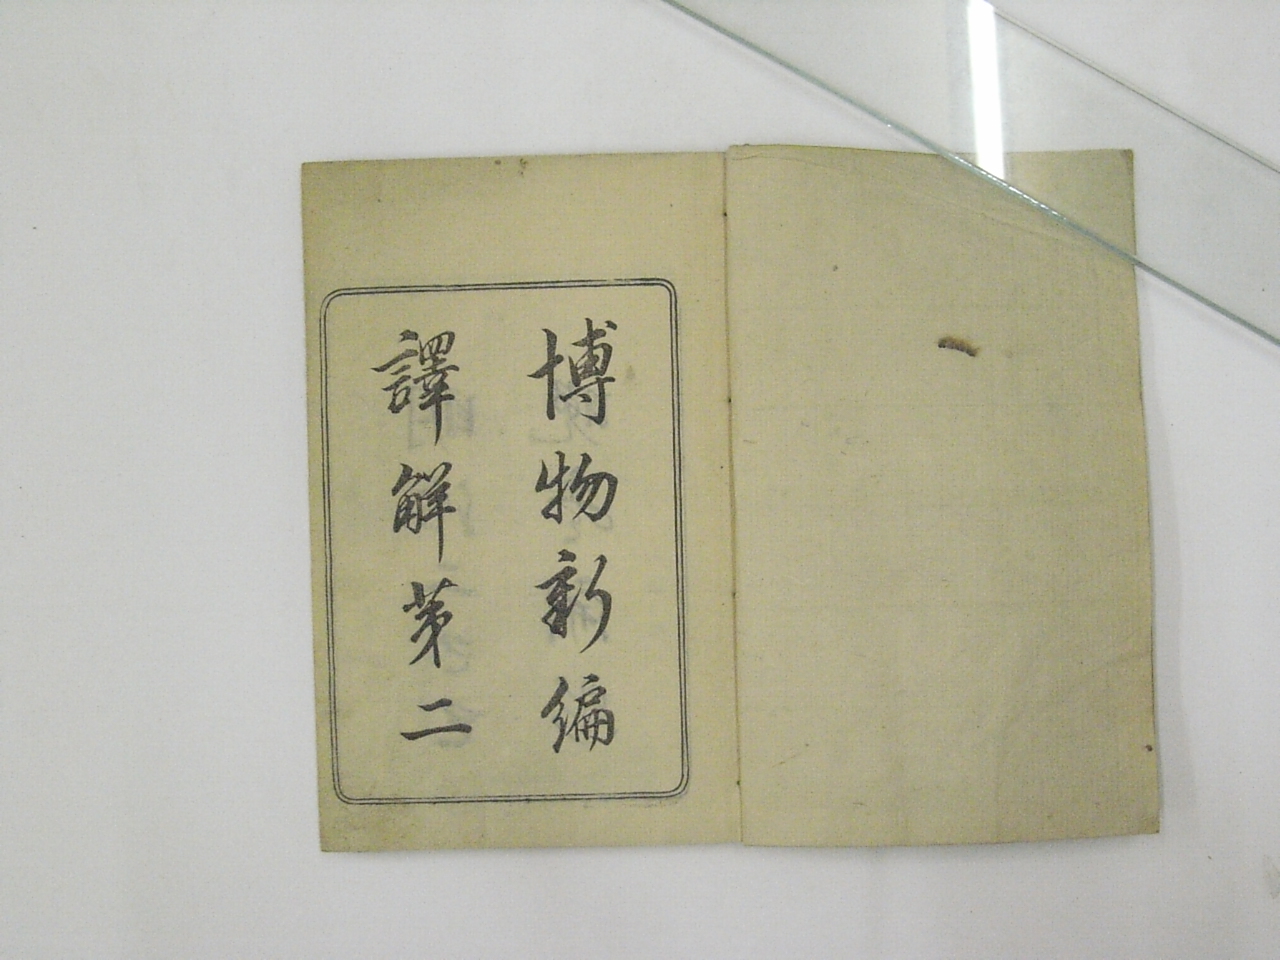 博物新編
譯解苐二